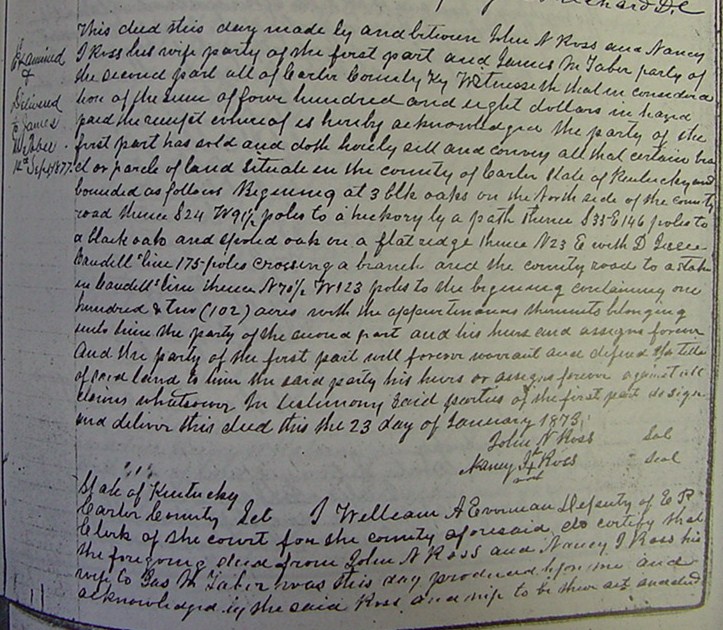 Richard D.C
This deed this day made by and between John N Ross and Nancy
J Ross his wife party of the first part and James M Taber party of
the second part all of Carter County Ky Witnesseth that in considera
tion of the sum of four hundred and eight dollars in hand
paid the receipt whereof is hereby acknowledged the party of the
first part has sold and doth hereby sell and convey all that certain tra
ct or parcle of land situate in the county of Carter State of Kentucky and
bounded as follows Begining at 3 blk oaks on the North side of the county
road thence S24 W 9½ poles to a hickory by a path thence S 35 E 146 poles to
a black oak and spotted oak on a flat ridge thence N23 E with D
Caudell's line 175 poles crossing a branch and the county road to a stake
in Caudell's line thence N70½ W 123 poles to the begining containing one
hundred & two (102) acres with the appurtinances thereunto belonging
unto him the party of the second part and his heirs and assigns forever
And the party of the first part will forever warrant and defend the title
of said land to him the said party his heirs or assigns forever against all
claims whatsoever In testimony said parties of the first part do sign
and deliver this deed this the 23 day of January 1873
John N Ross Seal
Nancy J Ross Seal
Examined
&
Delivered
to James
Sept 1877
State of Kentucky
Carter County Sct I William A Everman Deputy of E P
Clerk of the court for the county aforesaid do certify that
the foregoing deed from John N Ross and Nancy J Ross his
wife to Jas M Taber was this day produced before me and
acknowledged by the said Ross and wife to be their act and deed